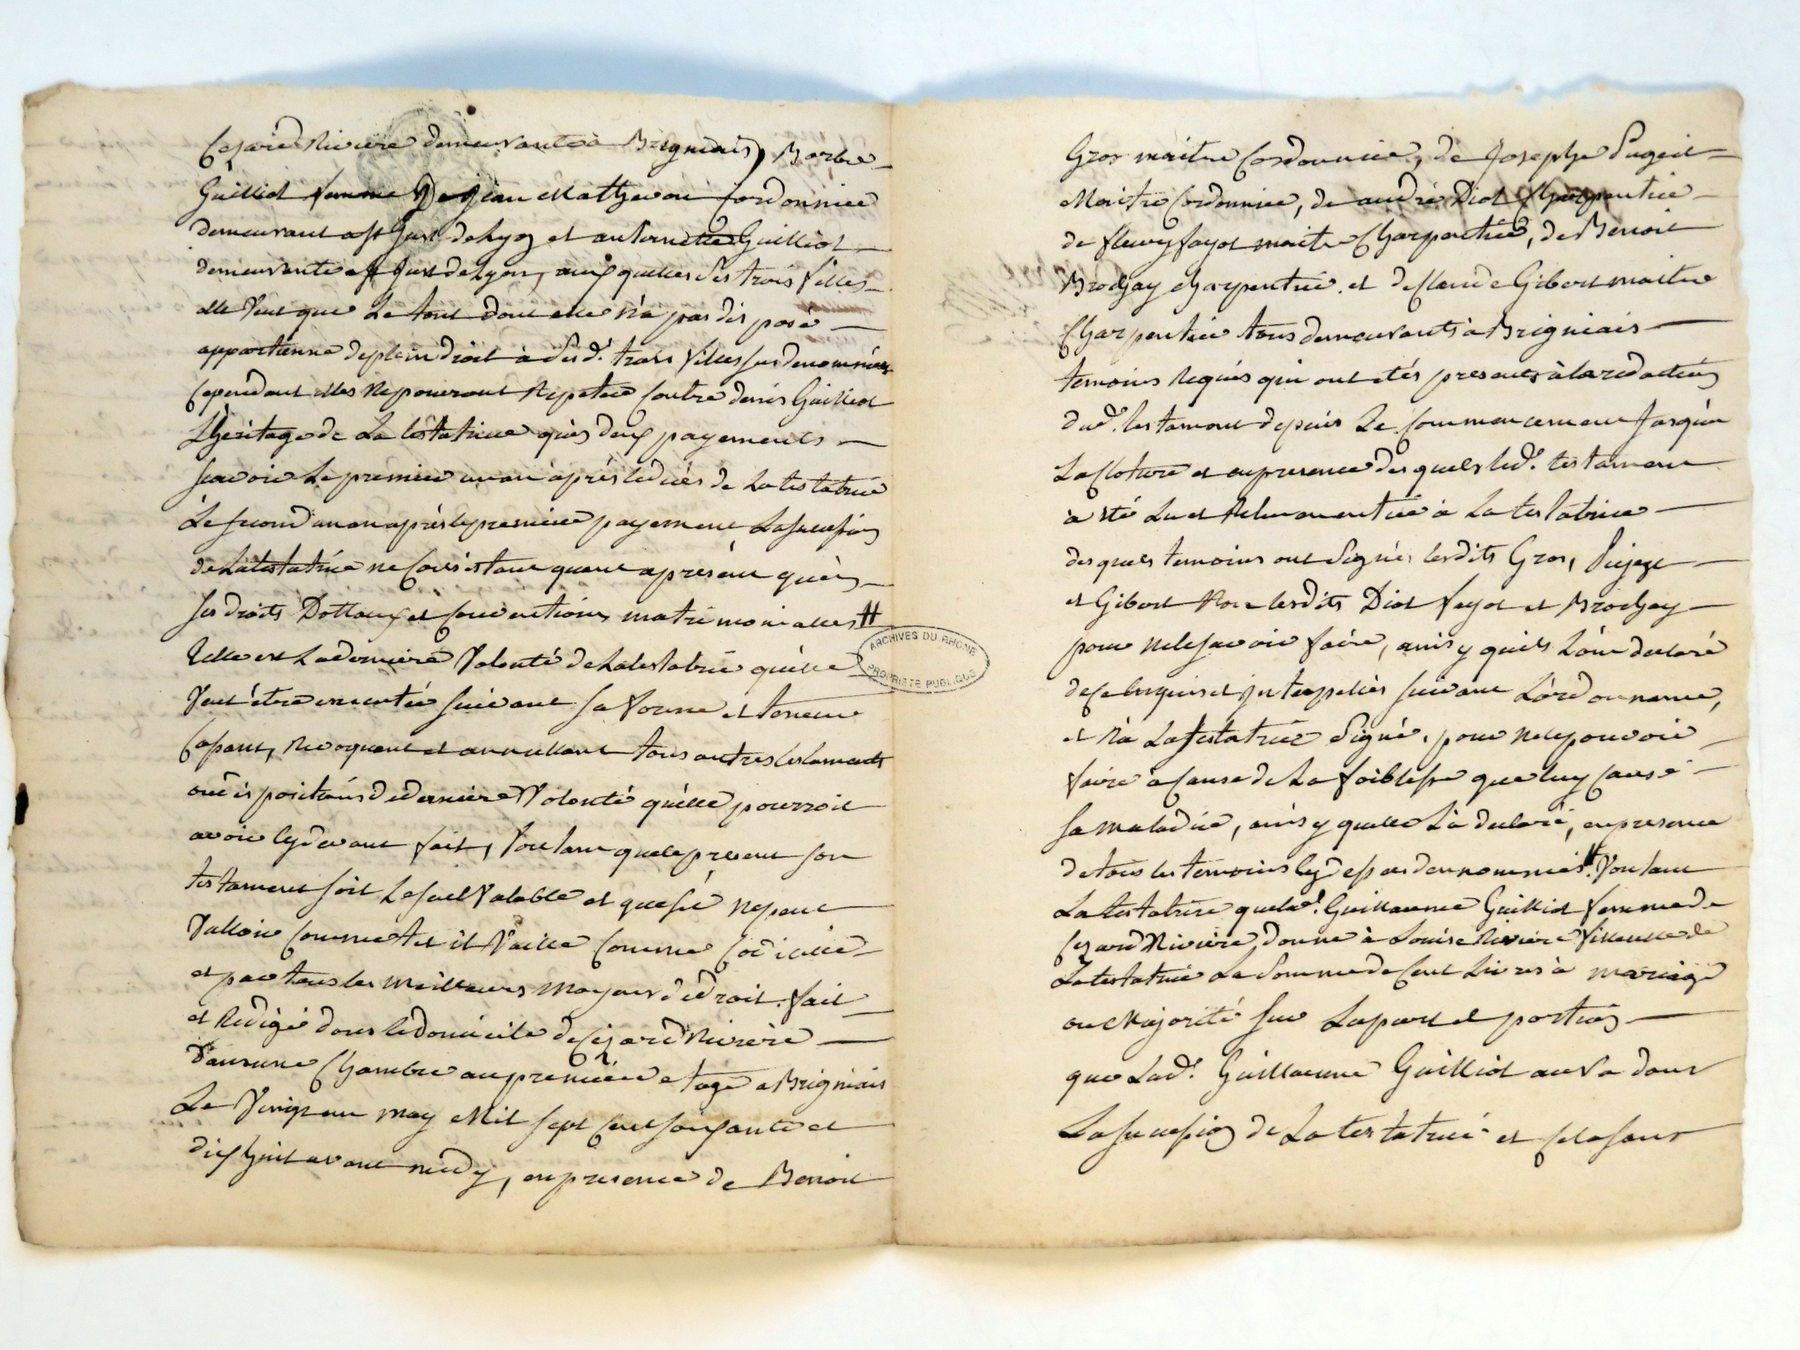 Cezard Riviere demeurante à Brigniais, Barbe
Guilliot femme De Jean Mathevon Cordonnier
demeurant a st Just de Lyon et anthoinette Guilliot
demeurante a st Just de Lyon, aux quelles Ses trois filles
elle Veut que Le tout dont elle n'à pas dis posé
appartienne de plein droit à Sesd. trois filles Sus denommées
Cependant elles ne pouront Repeter Contre denis Guilliot
L'heritage de La testatrice qu'es deux payements
Scavoir Le premier un an après le decès de La testatrice
Le Second un an après le premier payement, La Sucession
de La testatrice ne Consistant quant apresent qu'en
Ses droits Dottaux et Conventions matrimonialles #
Telle est La derniere Volonté de La testatrice qu'elle
Veut être executée Suivant Sa forme et teneur
Cassant, Revoquant et annullant tous autres testaments
ou dis positions de derniere Volonté qu'elle pourroit
avoir Cy devant fait, Voulant que le present Son
testament Soit Le Seul Valable et que S'il ne peut
Valloir Comme tel il Vaille Comme Codicille
et par tous les meilleurs moyens de droit. fait
et Redigé dans le domicile de Cezard Riviere
dans une Chambre au premier etage a Brigniais
Le Vingt un may Mil Sept Cent Soixante et
dix huit avant midy, en presence de Benoit
ARCHIVES DU RHONE
PROPRIÉTÉ PUBLIQUE
Gros maitre Cordonnier, de Josephe Pugeit
Maitre Cordonnier, de andré Diot Charpentier
de fleury fayot maitre Charpentier, de Benoit
Brochay Charpentier et de Claude Gibert maitre
Charpentier tous demeurants à Brigniais
temoins Requis qui ont etés presents à la redaction
dud. testament depuis Le Commencement Jusqu'a
La Cloture et en presence des quels led. testament
à eté Lu et Relu en entier à La testatrice
des quels temoins ont Signés lesdits Gros, Pujeit
et Gibert Non lesdits Diot fayot et Brochay
pour ne le Savoir faire, ainsy qu'ils L'ont declaré
de ce Enquis et interpellés Suivant L'ordonnance,
et n'a La testatrice Signé, pour ne le pouvoir
faire à Cause de La foiblesse que luy Cause
Sa maladie, ainsy quelle L'a declaré, en presence
de tous les temoins Cy dessus denommés. # Voulant
La testatrice que lad. Guillaume Guilliot femme de
Cezard Riviere, donne à Louise Riviere filleulle de
La testatrice La Somme de Cent Livres à mariage
ou Majorité Sur La part et portion
que Lad. Guillaume Guilliot aura dans
La Sucession de La testatrice et Cela Sans